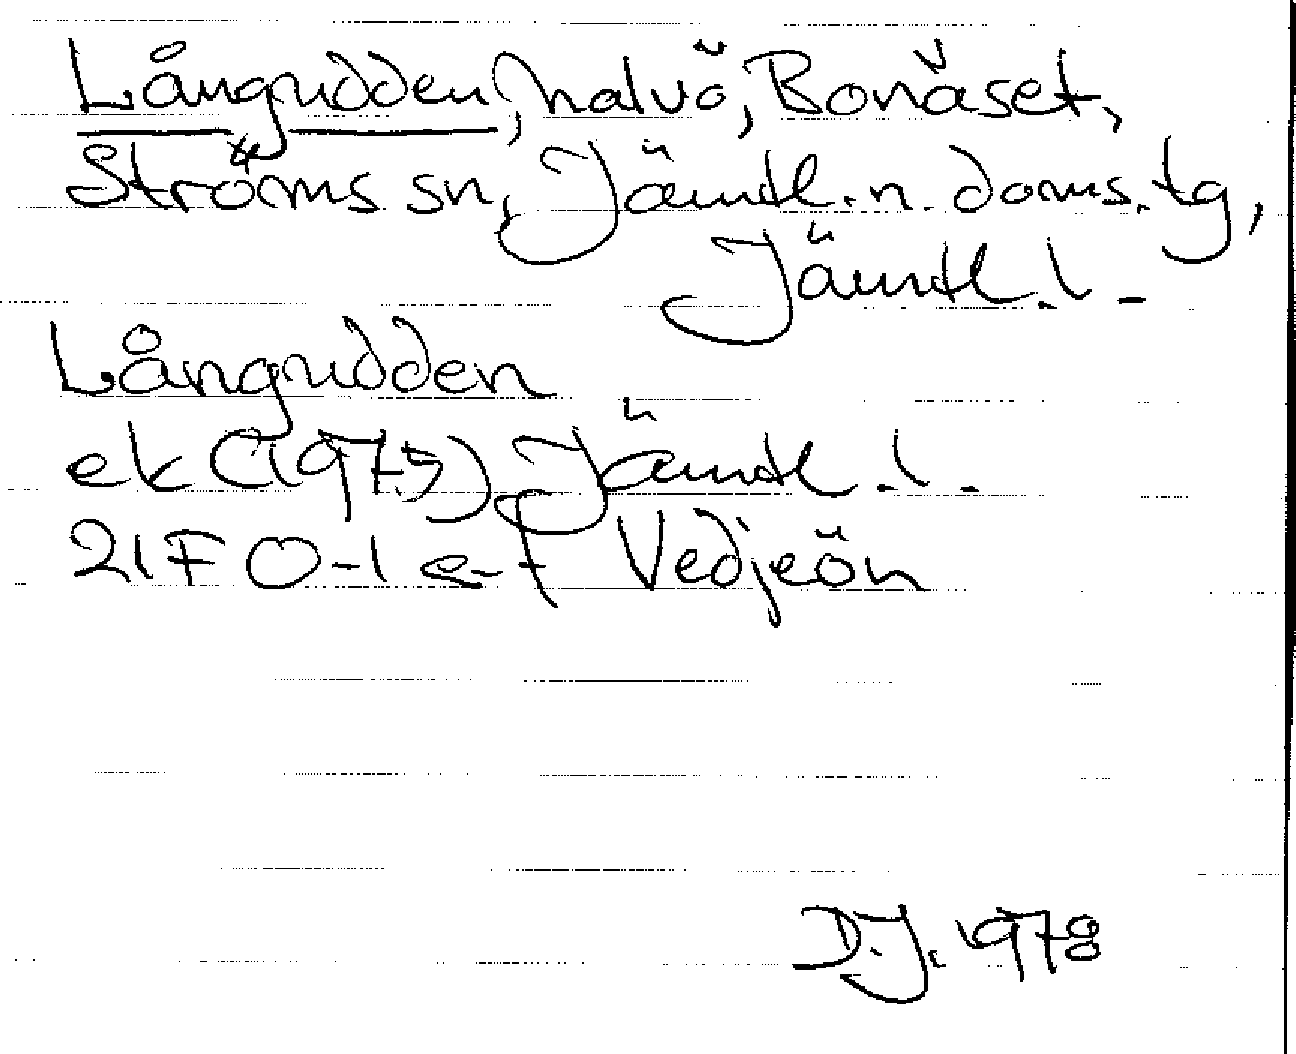 Långudden, halvö, Bonäset,
Ströms sn, Jämtl. n. doms. tg,
Jämtl. l. -
Långudden
ek (1975) Jämtl. l. -
21F 0-1 e-f Vedjeön
D.J. 1978